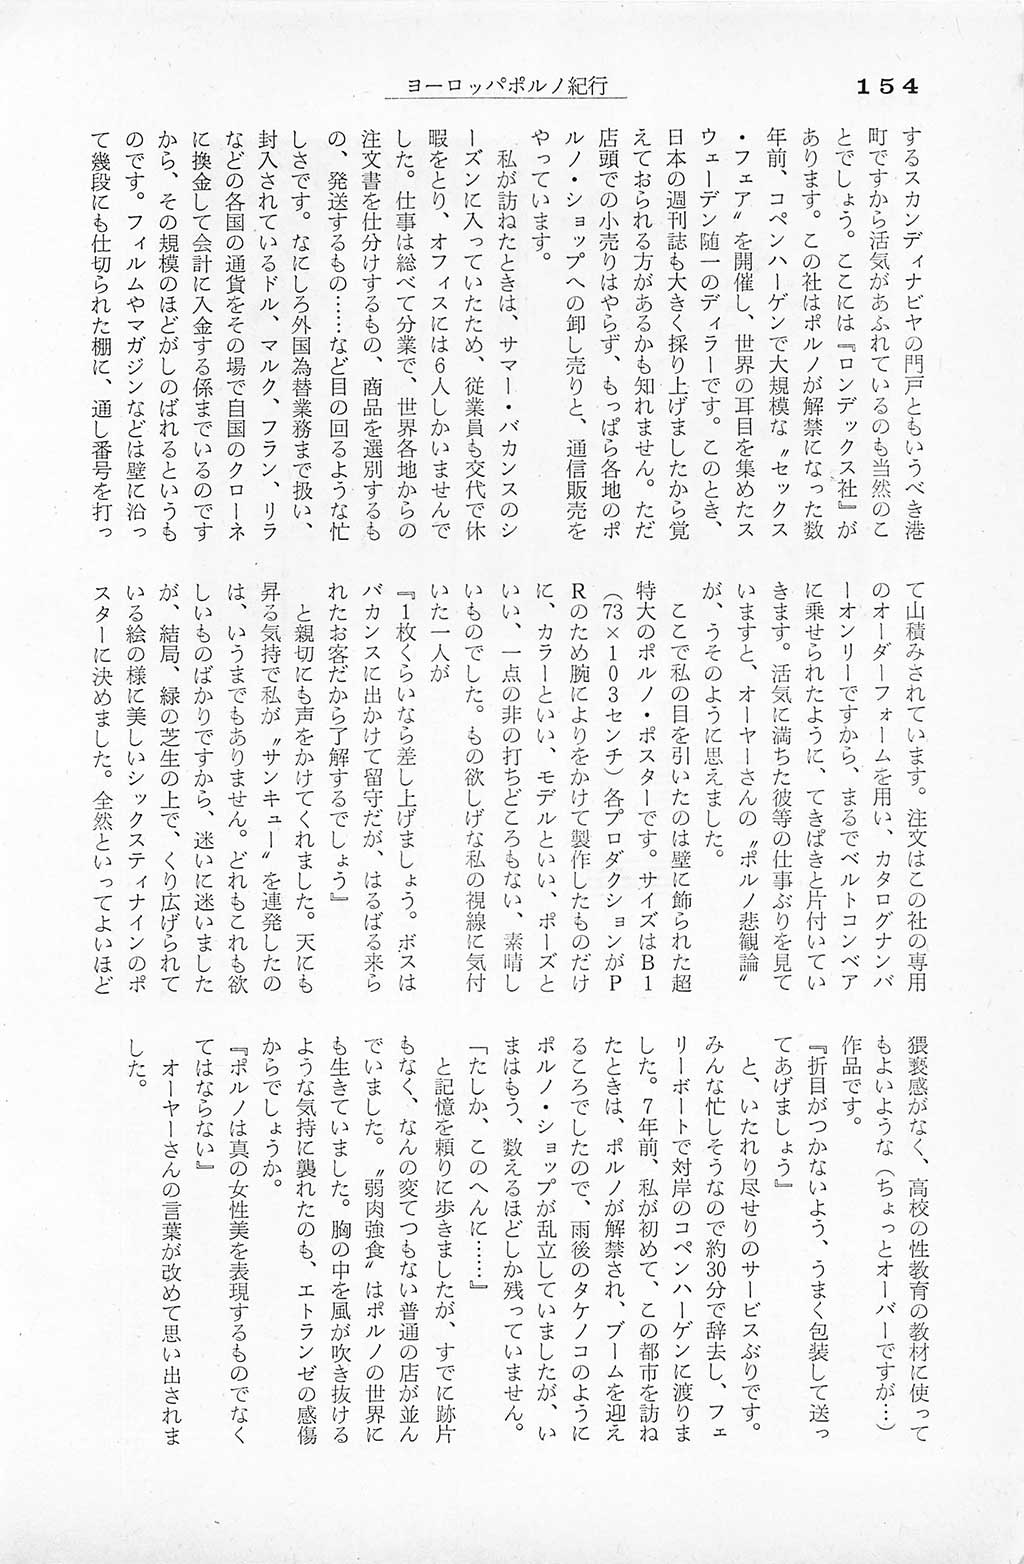 154
ヨーロッパポルノ紀行
するスカンディナビヤの門戸ともいうべき港
町ですから活気があふれているのも当然のこ
とでしょう。ここには『ロンデックス社』が
あります。この社はポルノが解禁になった数
年前、コペンハーゲンで大規模な〝セックス
・フェア〟を開催し、世界の耳目を集めたス
ウェーデン随一のディラーです。このとき、
日本の週刊誌も大きく採り上げましたから覚
えておられる方があるかも知れません。ただ
店頭での小売りはやらず、もっぱら各地のポ
ルノ・ショップへの卸し売りと、通信販売を
やっています。
私が訪ねたときは、サマー・バカンスのシ
ーズンに入っていたため、従業員も交代で休
暇をとり、オフィスには6人しかいませんで
した。仕事は総べて分業で、世界各地からの
注文書を仕分けするもの、商品を選別するも
の、発送するもの……など目の回るような忙
しさです。なにしろ外国為替業務まで扱い、
封入されているドル、マルク、フラン、リラ
などの各国の通貨をその場で自国のクローネ
に換金して会計に入金する係までいるのです
から、その規模のほどがしのばれるというも
のです。フィルムやマガジンなどは壁に沿っ
て幾段にも仕切られた棚に、通し番号を打っ
て山積みされています。注文はこの社の専用
のオーダーフォームを用い、カタログナンバ
ーオンリーですから、まるでベルトコンベア
に乗せられたように、てきぱきと片付いてい
きます。活気に満ちた彼等の仕事ぶりを見て
いますと、オーヤーさんの〝ポルノ悲観論〟
が、うそのように思えました。
ここで私の目を引いたのは壁に飾られた超
特大のポルノ・ポスターです。サイズはB1
（73×103センチ）各プロダクションがP
Rのため腕によりをかけて製作したものだけ
に、カラーといい、モデルといい、ポーズと
いい、一点の非の打ちどころもない、素晴し
いものでした。もの欲しげな私の視線に気付
いた一人が
『1枚くらいなら差し上げましょう。ボスは
バカンスに出かけて留守だが、はるばる来ら
れたお客だから了解するでしょう』
と親切にも声をかけてくれました。天にも
昇る気持で私が〝サンキュー〟を連発したの
は、いうまでもありません。どれもこれも欲
しいものばかりですから、迷いに迷いました
が、結局、緑の芝生の上で、くり広げられて
いる絵の様に美しいシックスティナインのポ
スターに決めました。全然といってよいほど
猥褻感がなく、高校の性教育の教材に使って
もよいような（ちょっとオーバーですが…）
作品です。
『折目がつかないよう、うまく包装して送っ
てあげましょう』
と、いたれり尽せりのサービスぶりです。
みんな忙しそうなので約30分で辞去し、フェ
リーボートで対岸のコペンハーゲンに渡りま
した。7年前、私が初めて、この都市を訪ね
たときは、ポルノが解禁され、ブームを迎え
るころでしたので、雨後のタケノコのように
ポルノ・ショップが乱立していましたが、い
まはもう、数えるほどしか残っていません。
「たしか、このへんに……』
と記憶を頼りに歩きましたが、すでに跡片
もなく、なんの変てつもない普通の店が並ん
でいました。〝弱肉強食〟はポルノの世界に
も生きていました。胸の中を風が吹き抜ける
ような気持に襲れたのも、エトランゼの感傷
からでしょうか。
『ポルノは真の女性美を表現するものでなく
てはならない』
オーヤーさんの言葉が改めて思い出されま
した。